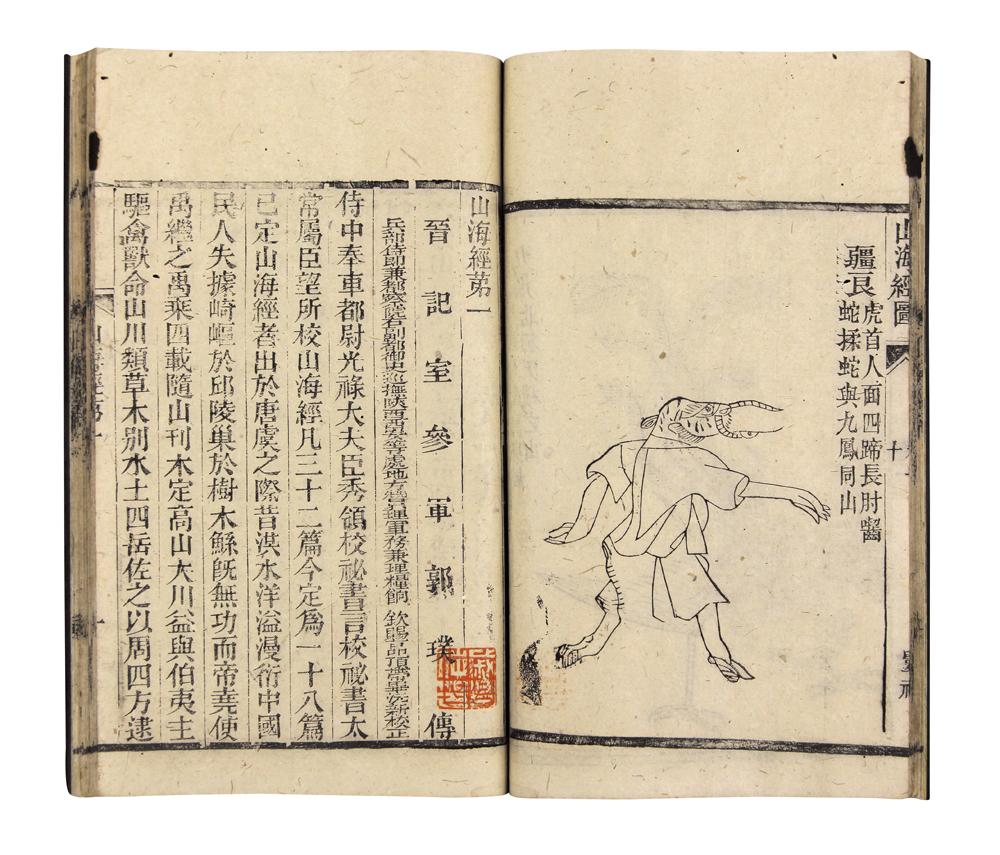 山海經圖
十
靈祇
疆良
虎首人面四蹄長肘齧
蛇揉蛇與九鳳同山
山海經第一
晉記室參軍郭璞傳
兵部侍郎兼都察院右副都御史巡撫陝西西安等處地方贊理軍務兼理糧餉 欽賜一品頂帶畢沅新校正
侍中奉車都尉光祿大夫臣秀領校祕書言校祕書太
常屬臣望所校山海經凡三十二篇今定爲一十八篇
已定山海經者出於唐虞之際昔洪水洋溢漫衍中國
民人失據崎嶇於邱陵巢於樹木鯀旣無功而帝堯使
禹繼之禹乘四載隨山刊木定高山大川益與伯夷主
驅禽獸命山川類草木別水土四岳佐之以周四方逮
山海經第一
一